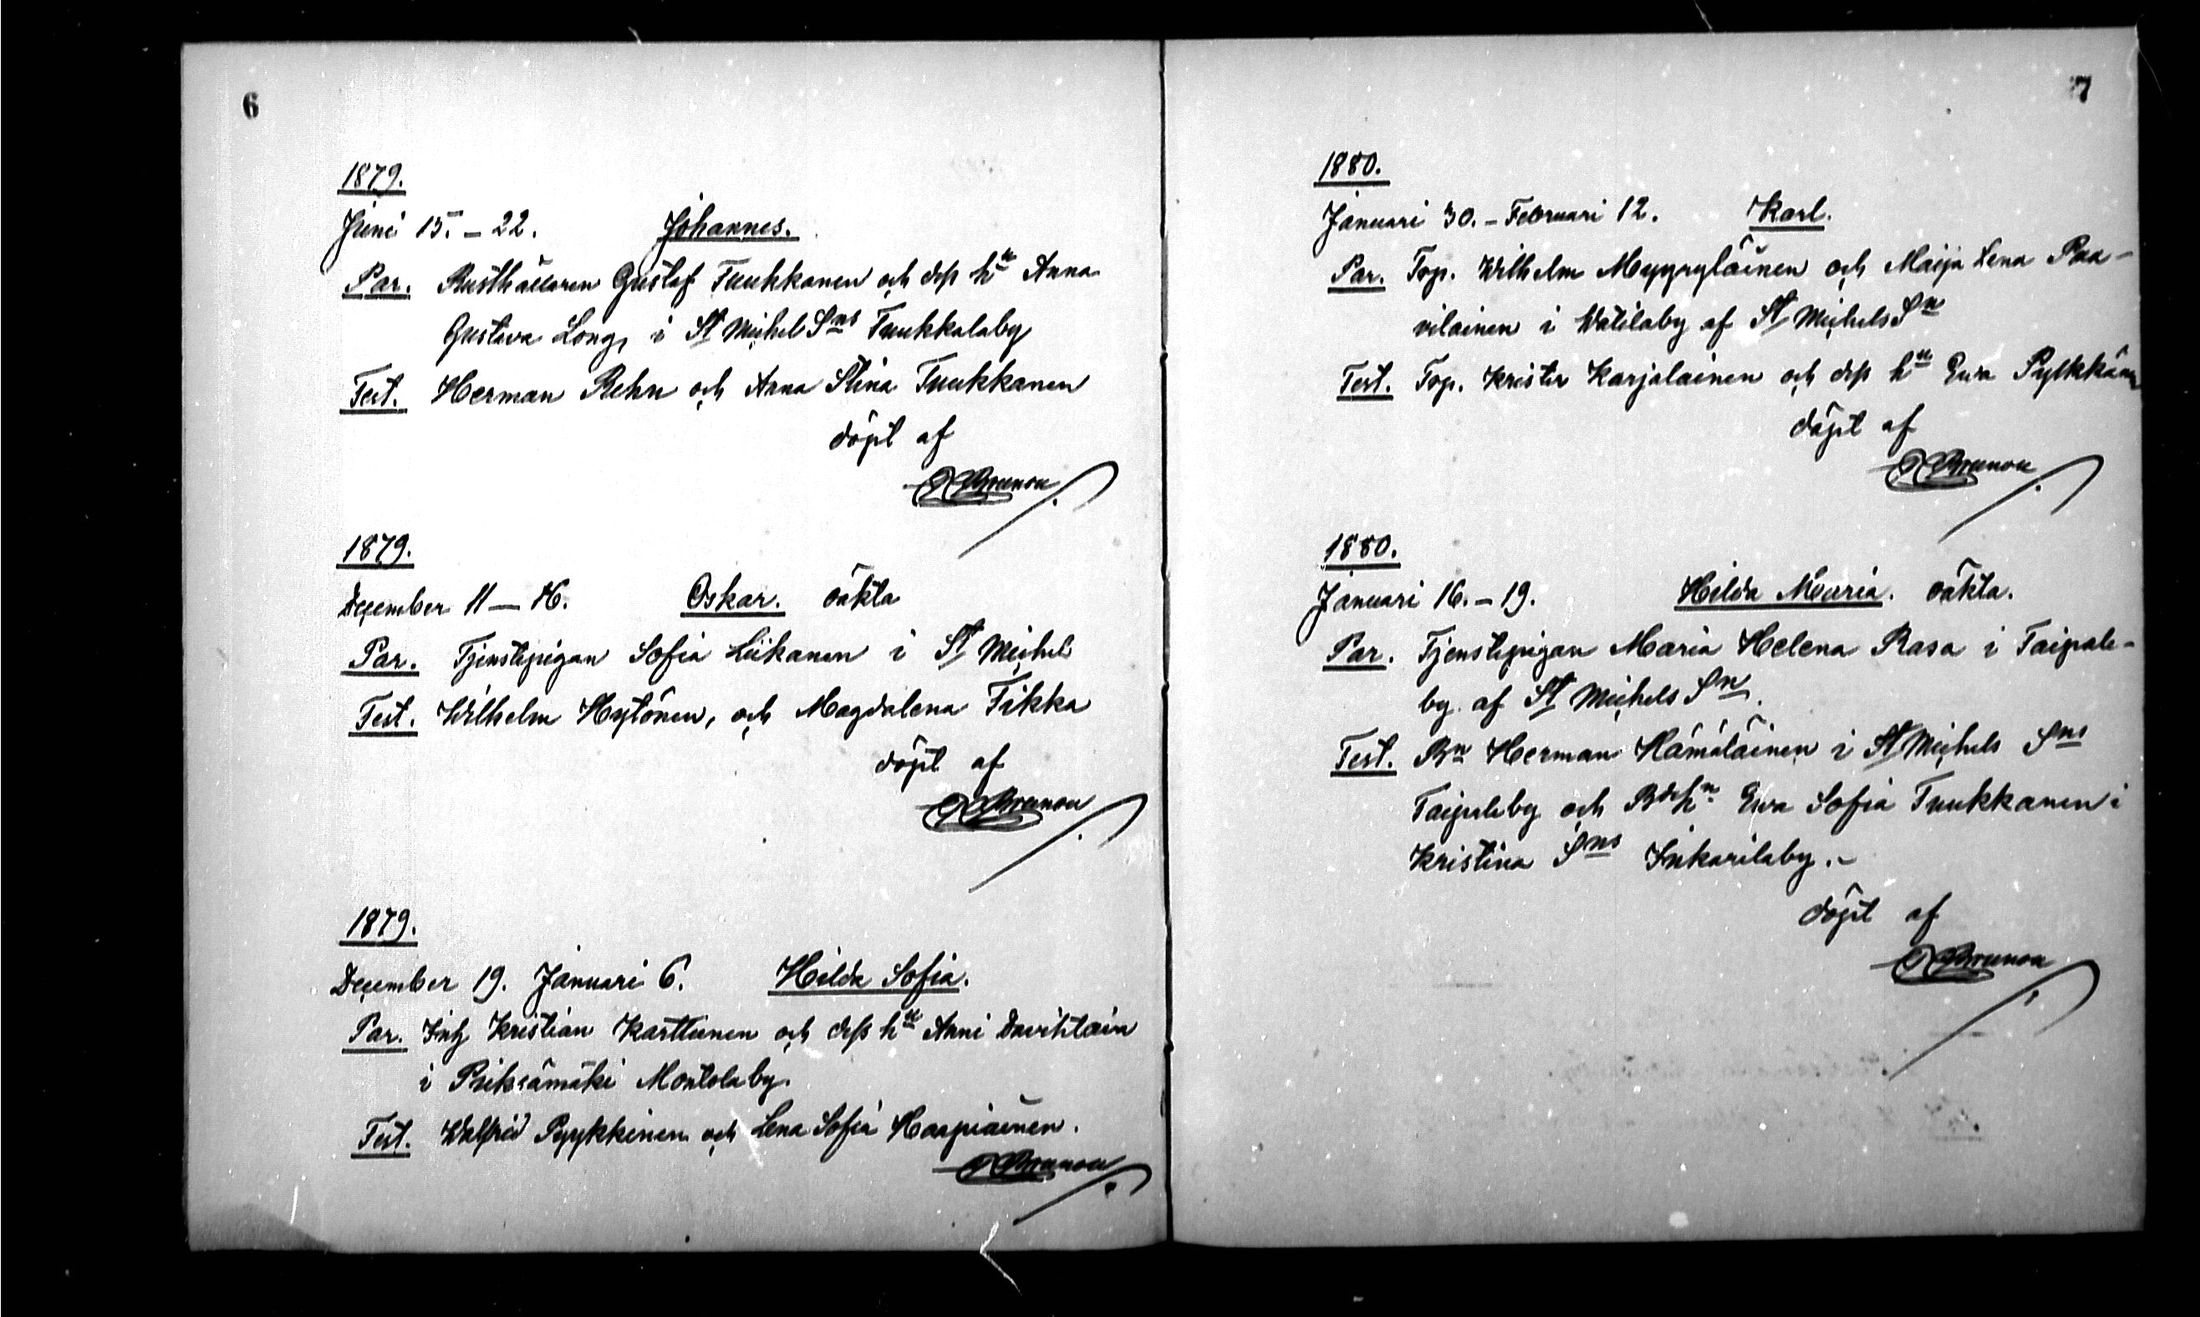 6
1879.
Juni 15. – 22. Johannes.
Par. Rusthållaren Gustaf Tuukkanen och dess hu Anna
Gustava Long, i St Michels Sns Tuukkalaby
Test. Herman Rehn och Anna Stina Tuukkanen
döpt af
Brunou
1879.
December 11 – 16. Oskar. oäkta
Par. Tjenstepigan Sofia Liikanen i St Michel
Test. Wilhelm Hytönen, och Magdalena Tikka
döpt af
Brunou
1879.
December 19. Januari 6. Hilda Sofia.
Par. Inh Kristian Karttunen och dess hu Anni
i Pieksämäki Montolaby.
Test. Walfrid Pyykkinen och Lena Sofia Haapiainen.
Brunou
7
1880.
Januari 30. – Februari 12. Karl.
Par. Torp. Wilhelm Myyryläinen och Maija Lena Paa-
vilainen i Watilaby af St Michels Sn
Test. Torp. Krister Karjalainen och dess hu Ewa
döpt af
Brunou
1880.
Januari 16. – 19. Hilda Maria. oäkta.
Par. Tjenstepigan Maria Helena Rasa i Taipale-
by af St Michels Sn.
Test. Bn Herman Hämäläinen i St Michels Sns
Taipaleby och Bdshn Ewa Sofia Tuukkanen i
Kristina Sns Inkarilaby. –
döpt af
Brunou